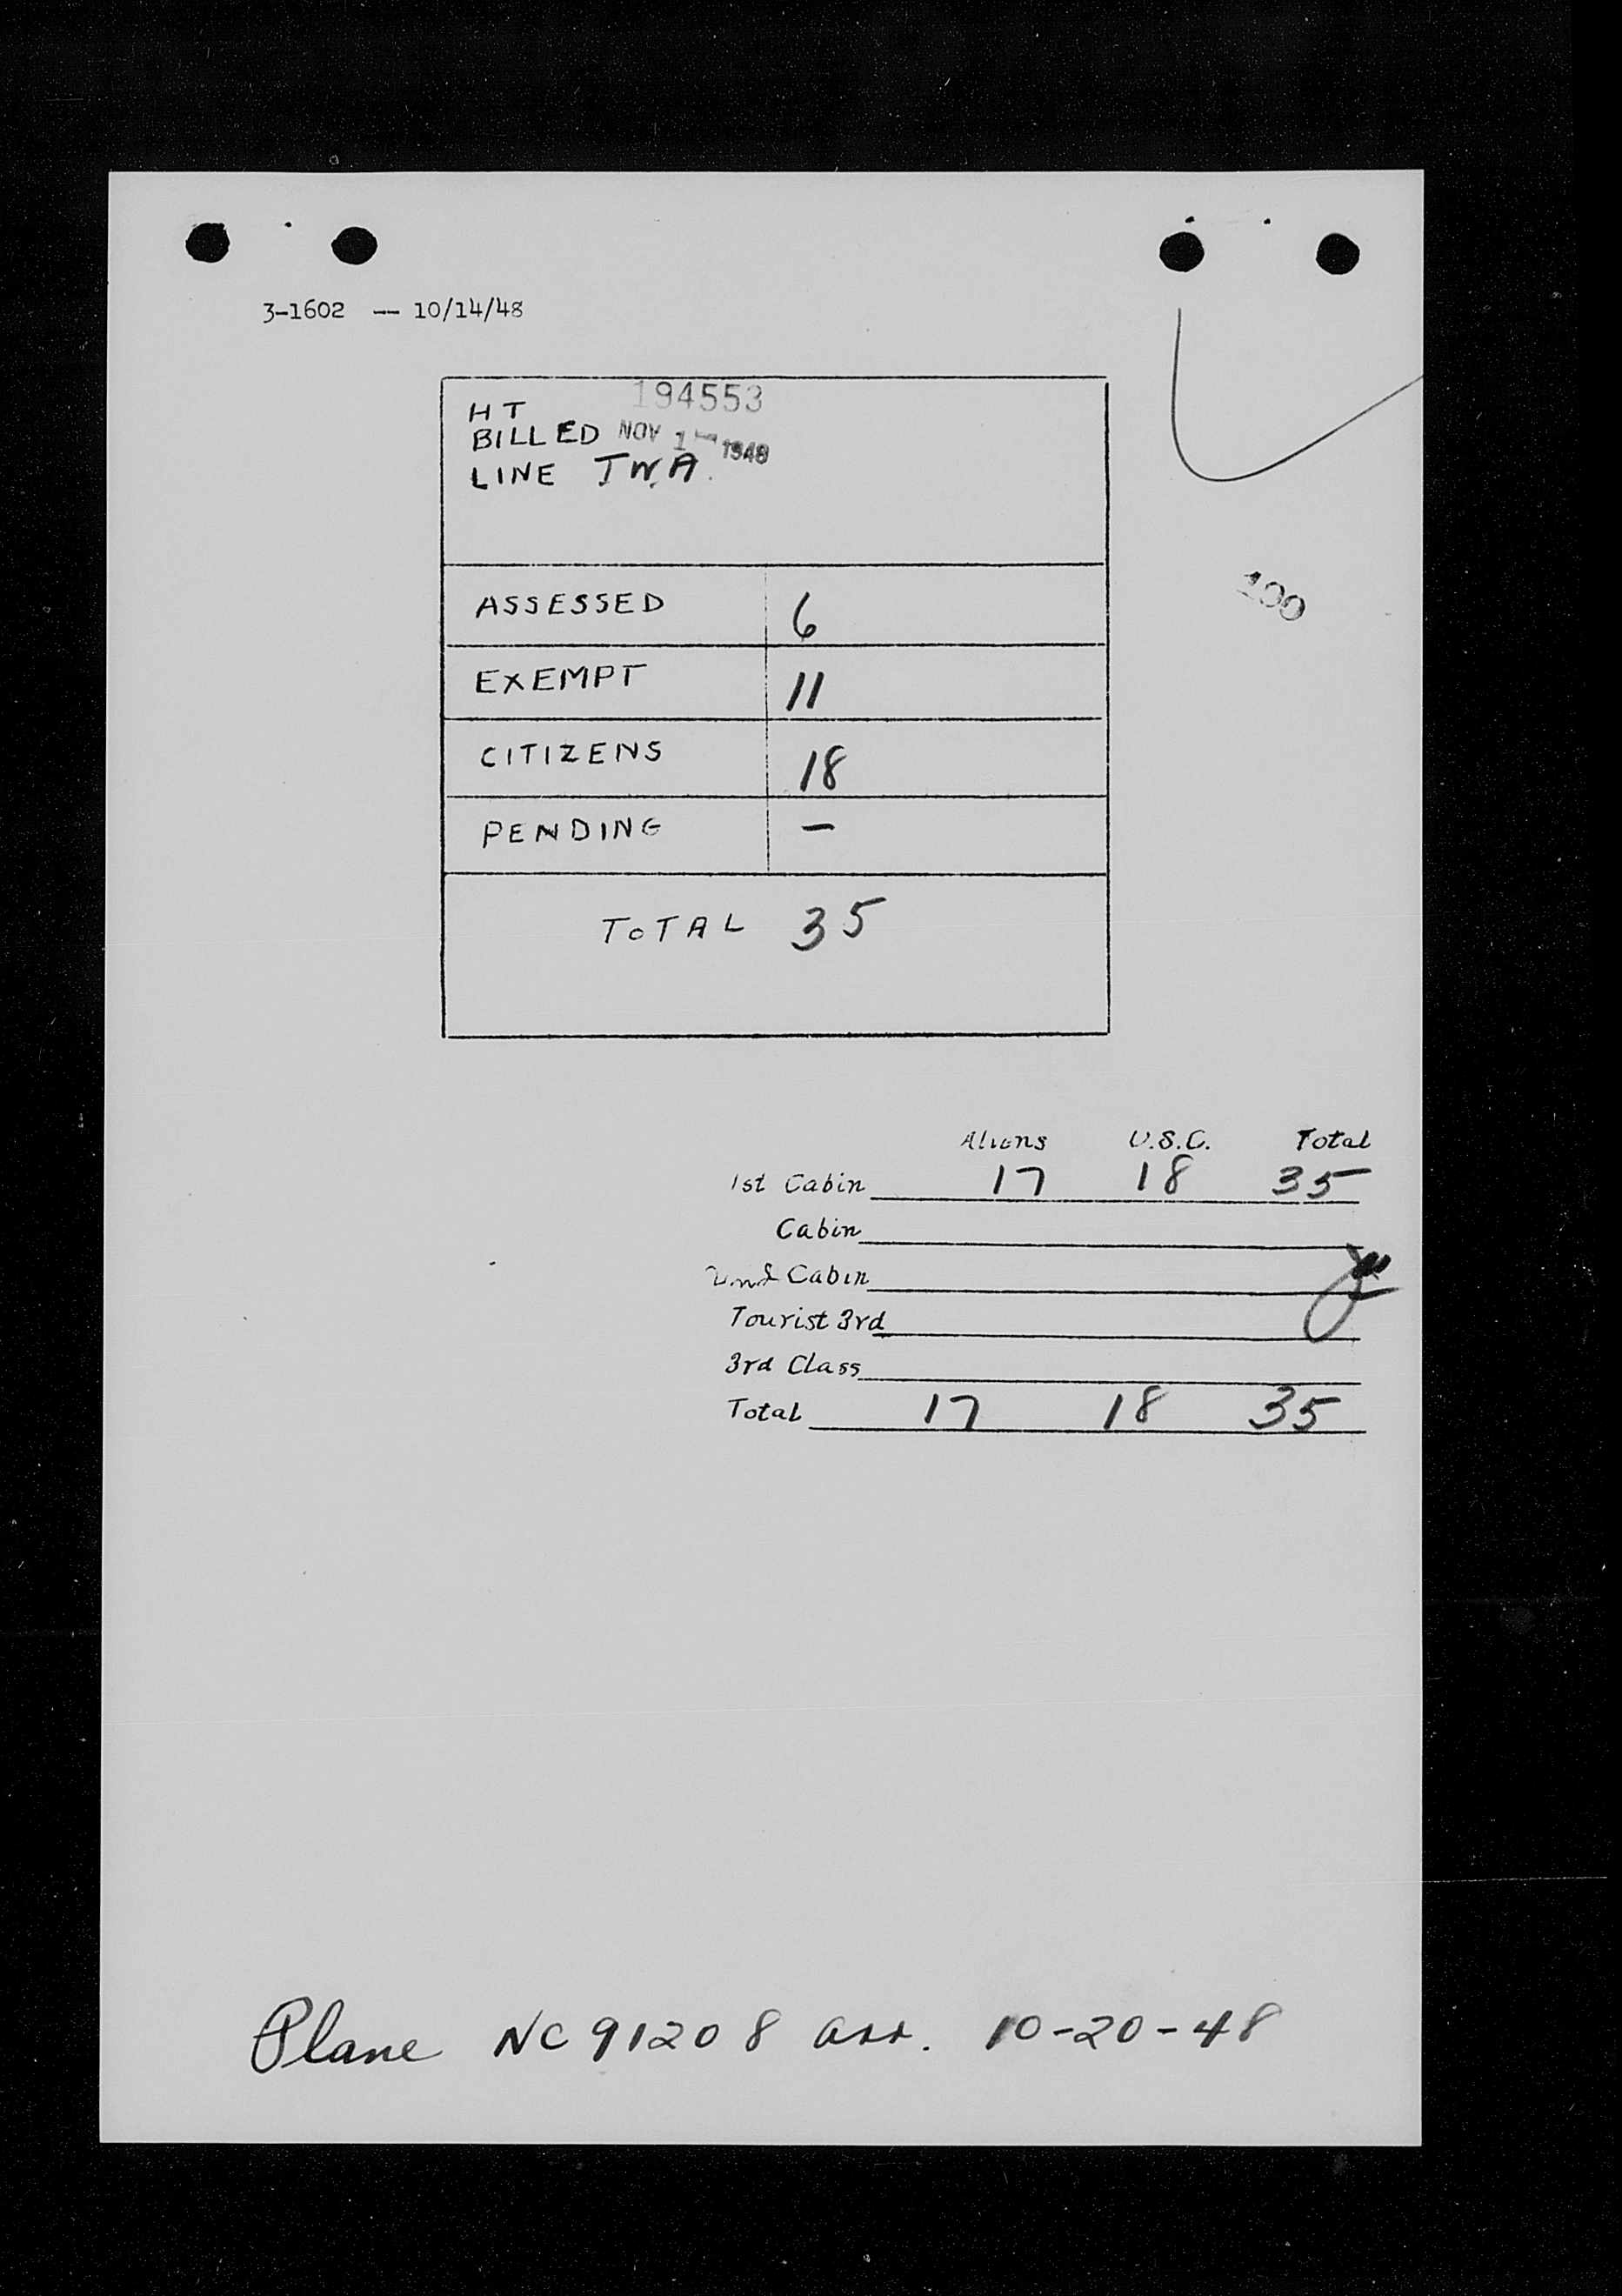 3-1602 -- 10/14/48
194553
HT
BILLED NOV 1 - 1948
LINE T.W.A.
100
ASSESSED 6
EXEMPT 11
CITIZENS 18
PENDING -
TOTAL 35
Aliens U.S.C. Total
1st Cabin 17 18 35
Cabin
2nd Cabin
Tourist 3rd
3rd Class
Total 17 18 35
Plane NC 91208 arr. 10-20-48